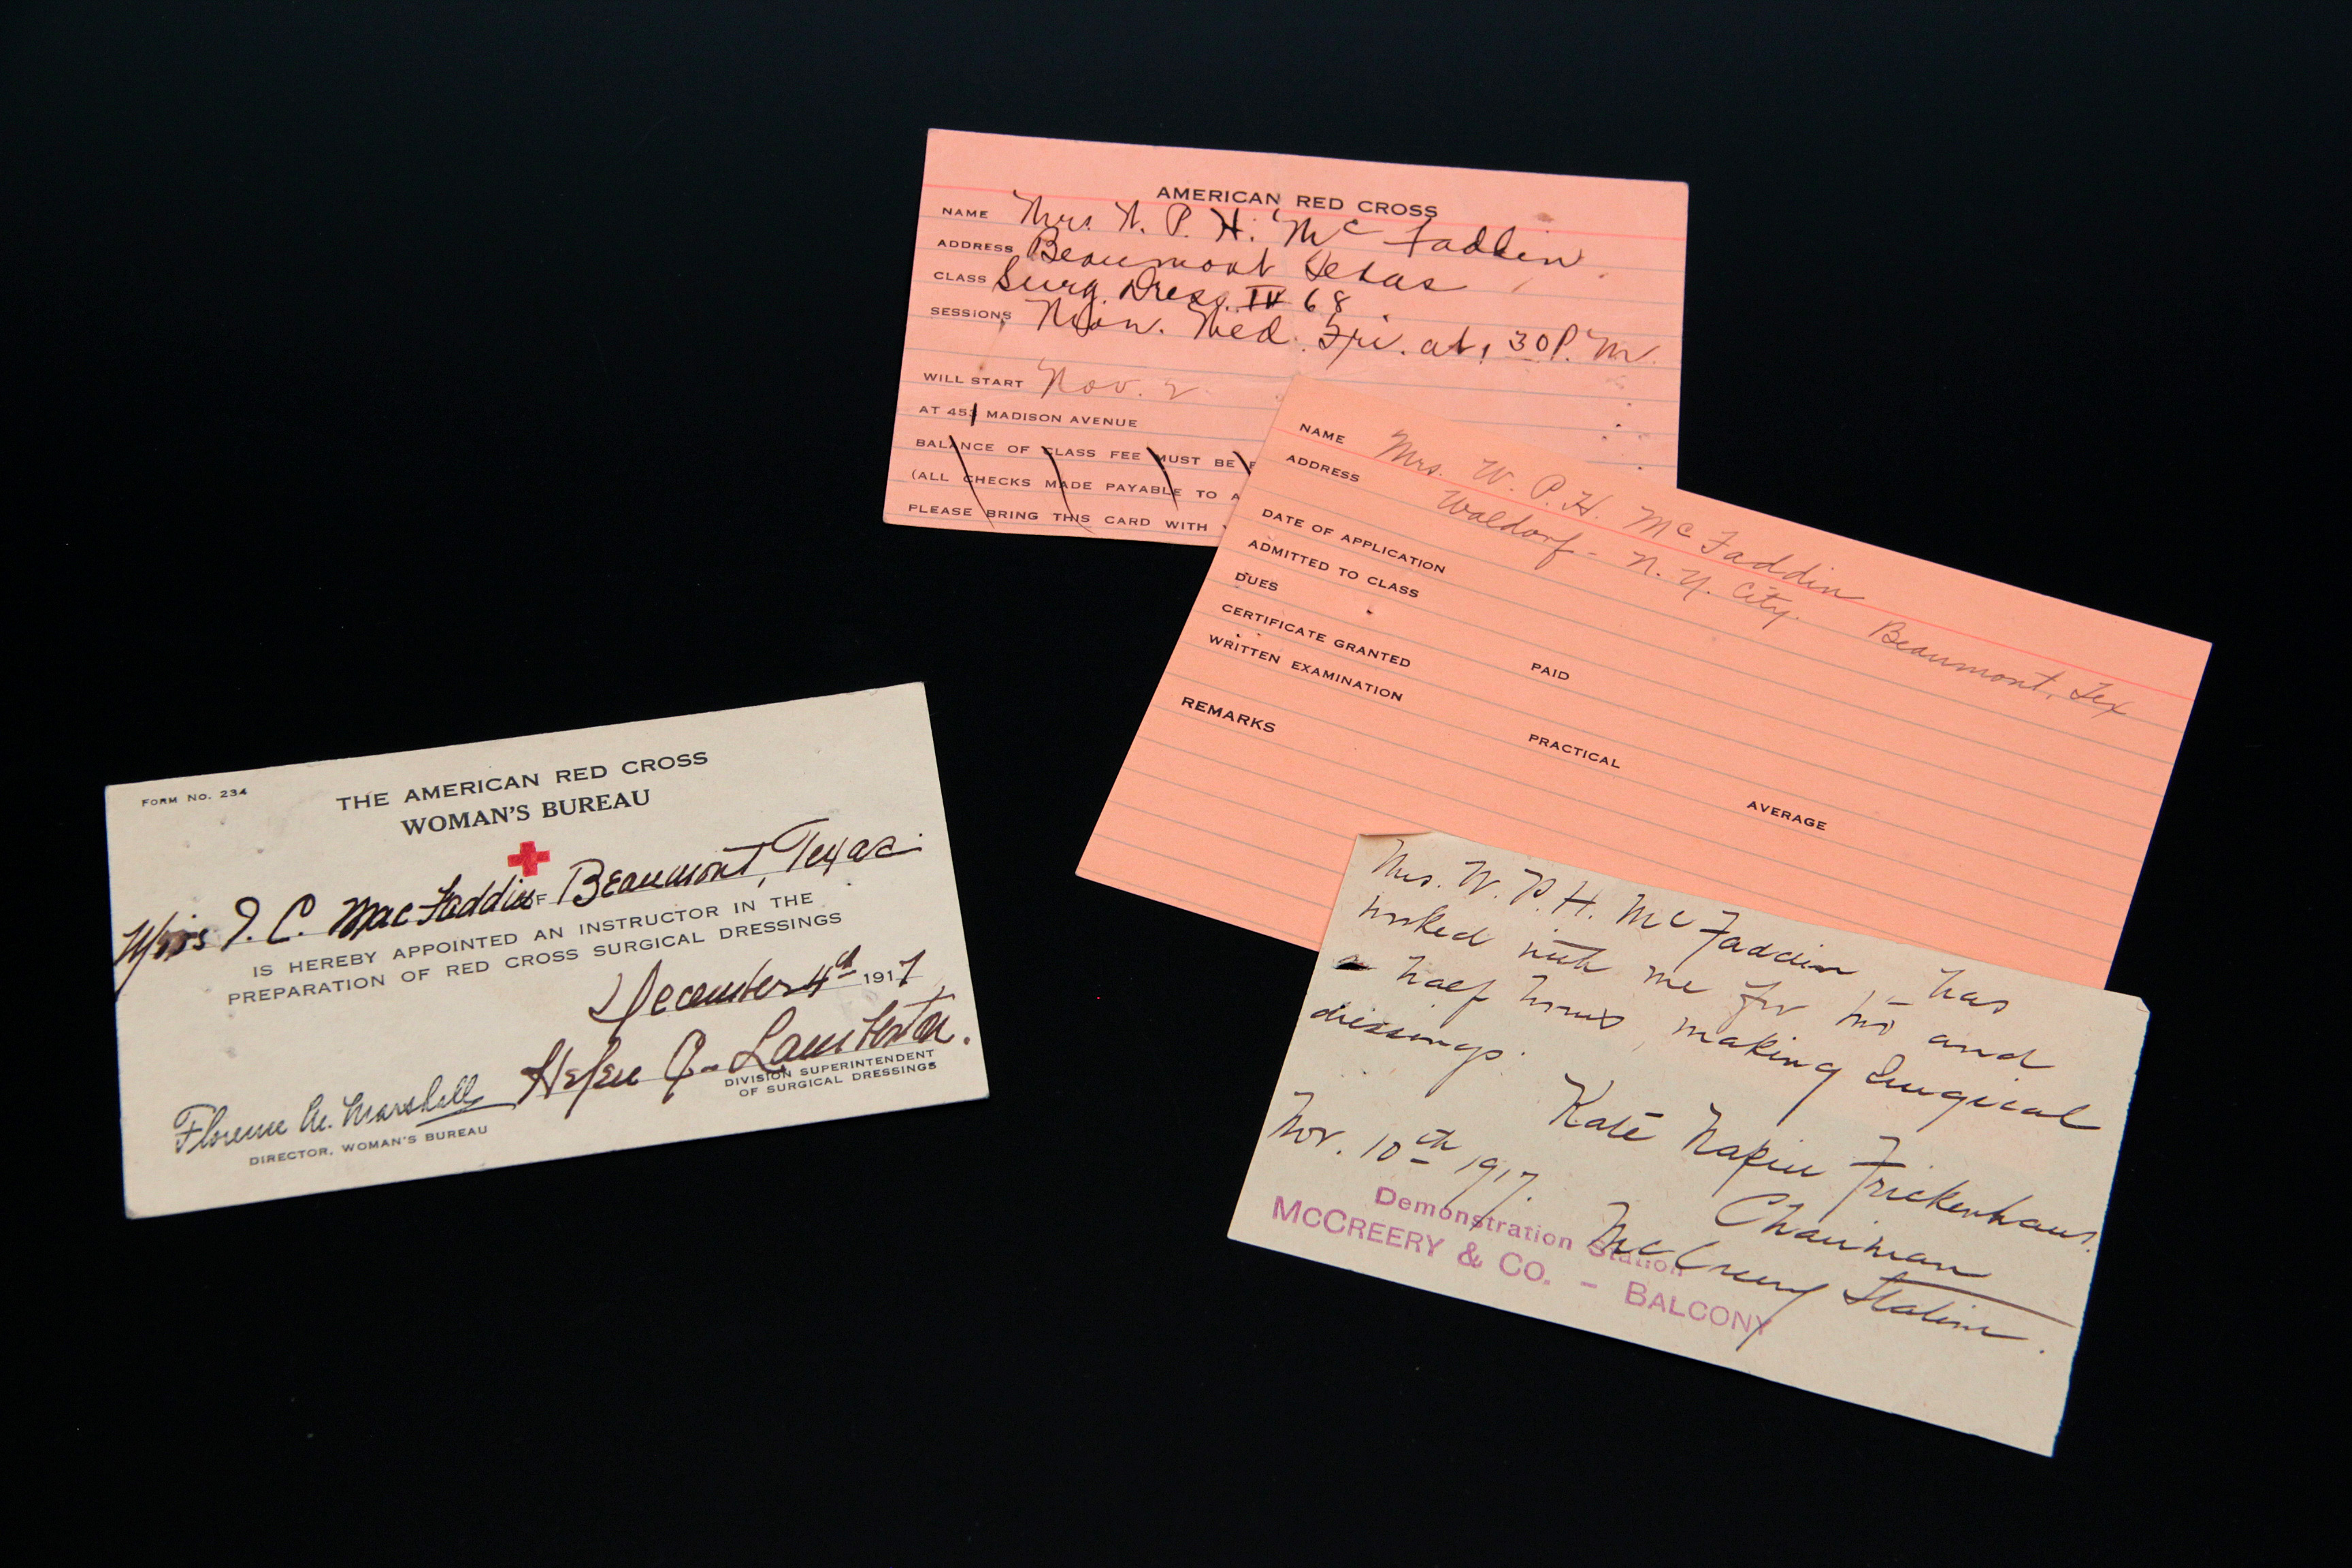 AMERICAN RED CROSS
NAME Mrs. W. P. H. Mc Faddin
ADDRESS Beaumont Texas
CLASS Surg. Dress. IV 68
SESSIONS Mon. Wed. Fri. at 1 30 P. M.
WILL START Nov. 2
AT 453 MADISON AVENUE
BALANCE OF CLASS FEE MUST BE
(ALL CHECKS MADE PAYABLE TO A
PLEASE BRING THIS CARD WITH
NAME Mrs. W. P. H. Mc Faddin
ADDRESS Waldorf - N. Y. City. Beaumont, Tex
DATE OF APPLICATION
ADMITTED TO CLASS
DUES PAID
CERTIFICATE GRANTED
WRITTEN EXAMINATION PRACTICAL AVERAGE
REMARKS
FORM NO. 234
THE AMERICAN RED CROSS
WOMAN'S BUREAU
J. C. MacFaddin OF Beaumont, Texas.
IS HEREBY APPOINTED AN INSTRUCTOR IN THE
PREPARATION OF RED CROSS SURGICAL DRESSINGS
December 4th 1917
Helen J.
DIVISION SUPERINTENDENT
OF SURGICAL DRESSINGS
Florence M. Marshall
DIRECTOR, WOMAN'S BUREAU
Mrs. W. P. H. Mc Faddin - has
worked with me for two and
a half hours, making Surgical
dressings.
Kate Napier Frickenhaus.
Nov. 10th 1917. Chairman
McCreery Station.
Demonstration Station
MCCREERY & CO. - BALCONY